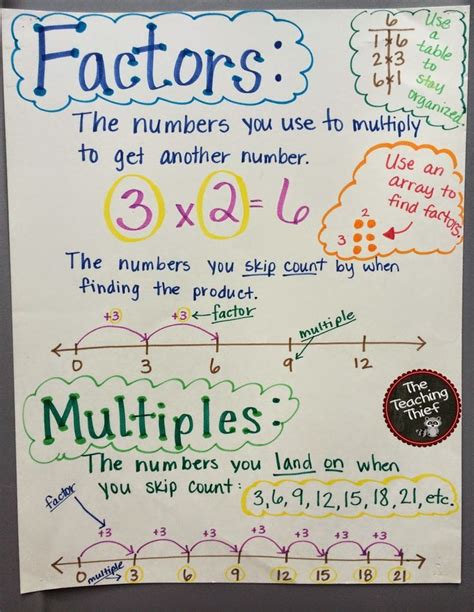 Factors:
6
1 x 6
2 x 3
6 x 1
Use
a
table
to
stay
organized.
The numbers you use to multiply
to get another number.
3 x 2 = 6
Use an
array to
find factors.
2
3
The numbers you skip count by when
finding the product.
+3 +3 factor
multiple
0 3 6 9 12
The
Teaching
Thief
Multiples:
The numbers you land on when
you skip count: 3, 6, 9, 12, 15, 18, 21, etc.
factor
+3 +3 +3 +3 +3 +3 +3
0 multiple 3 6 9 12 15 18 21